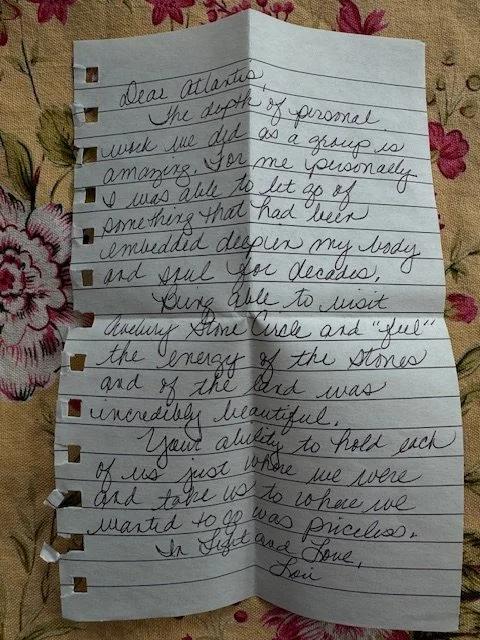 Dear Atlantis,
The depth of personal
work we did as a group is
amazing. For me personally
I was able to let go of
something that had been
embedded deep in my body
and soul for decades.
Being able to visit
Avebury Stone Circle and "feel"
the energy of the stones
and of the land was
incredibly beautiful.
Your ability to hold each
of us just where we were
and take us to where we
wanted to go was priceless.
In Light and Love,
Lori